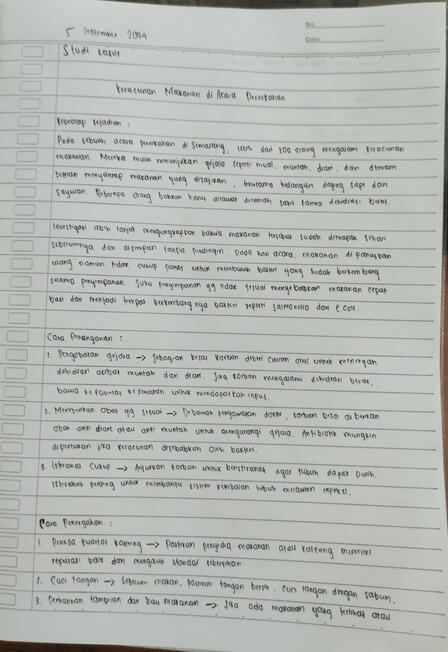 No.
Date.
5 September 2024
Studi kasus
Keracunan Makanan di Acara Pernikahan
Kronologi kejadian :
Pada sebuah acara pernikahan di Semarang, lebih dari 100 orang mengalami keracunan
makanan. Mereka mulai menunjukan gejala seperti mual, muntah, diare, dan demam
setelah menyantap makanan yang disajikan, terutama hidangan daging sapi dan
sayuran. Beberapa orang bahkan harus dirawat dirumah sakit karena dehidrasi berat.
Investigasi lebih lanjut mengungkapkan bahwa makanan tersebut sudah dimasak sehari
sebelumnya dan disimpan tanpa pendingin. Pada hari acara, makanan di panaskan
ulang namun tidak cukup panas untuk membunuh bakteri yang sudah berkembang
selama penyimpanan. Suhu penyimpanan yg tidak sesuai menyebabkan makanan cepat
basi dan menjadi tempat berkembang nya bakteri seperti salmonela dan e.coli.
Cara Penanganan :
1. Pengobatan gejala → sebagian besar korban diberi cairan oral untuk menangani
dehidrasi akibat muntah dan diare. Jika korban mengalami dehidrasi berat,
bawa ke fasilitas kesehatan untuk mendapatkan infus.
2. Memberikan obat yg sesuai → Dibawah pengawasan dokter, korban bisa diberikan
obat anti diare atau anti muntah untuk mengurangi gejala. Antibiotik mungkin
diperlukan jika keracunan disebabkan oleh bakteri.
3. Istirahat cukup → Anjurkan korban untuk beristirahat agar tubuh dapat pulih.
Istirahat penting untuk membantu sistem kekebalan tubuh melawan infeksi.
Cara Pencegahan :
1. Periksa kualitas katering → Pastikan penyedia makanan atau katering memiliki
reputasi baik dan mengikuti standar kebersihan
2. Cuci tangan → Sebelum makan, pastikan tangan bersih. Cuci tangan dengan sabun.
3. Perhatikan tampilan dan bau makanan → Jika ada makanan yang terlihat atau